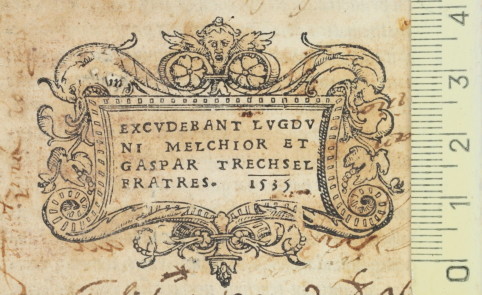 EXCVDEBANT LVGDV
NI MELCHIOR ET
GASPAR TRECHSEL
FRATRES. 1535
0 1 2 3 4